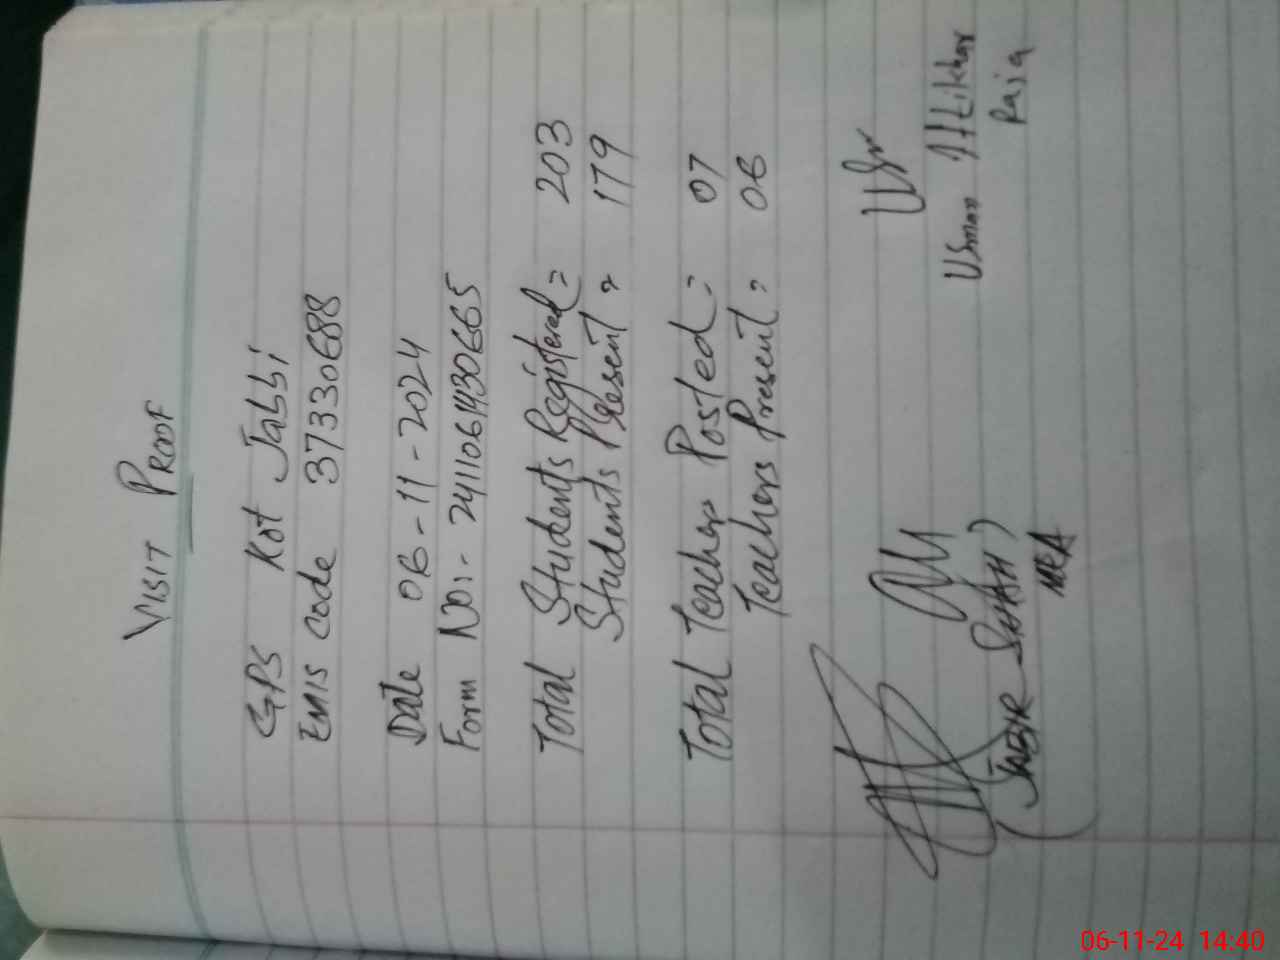 VISIT PROOF
GPS Kot Jabbi
EMIS code 37330688
Date 06-11-2024
Form No:- 2411061430665
Total Students Registered = 203
Students Present = 179
Total Teacher Posted = 07
Teachers Present = 06
(JABIR SHAH)
MEA
Usman Iftikhar
Raja
06-11-24 14:40